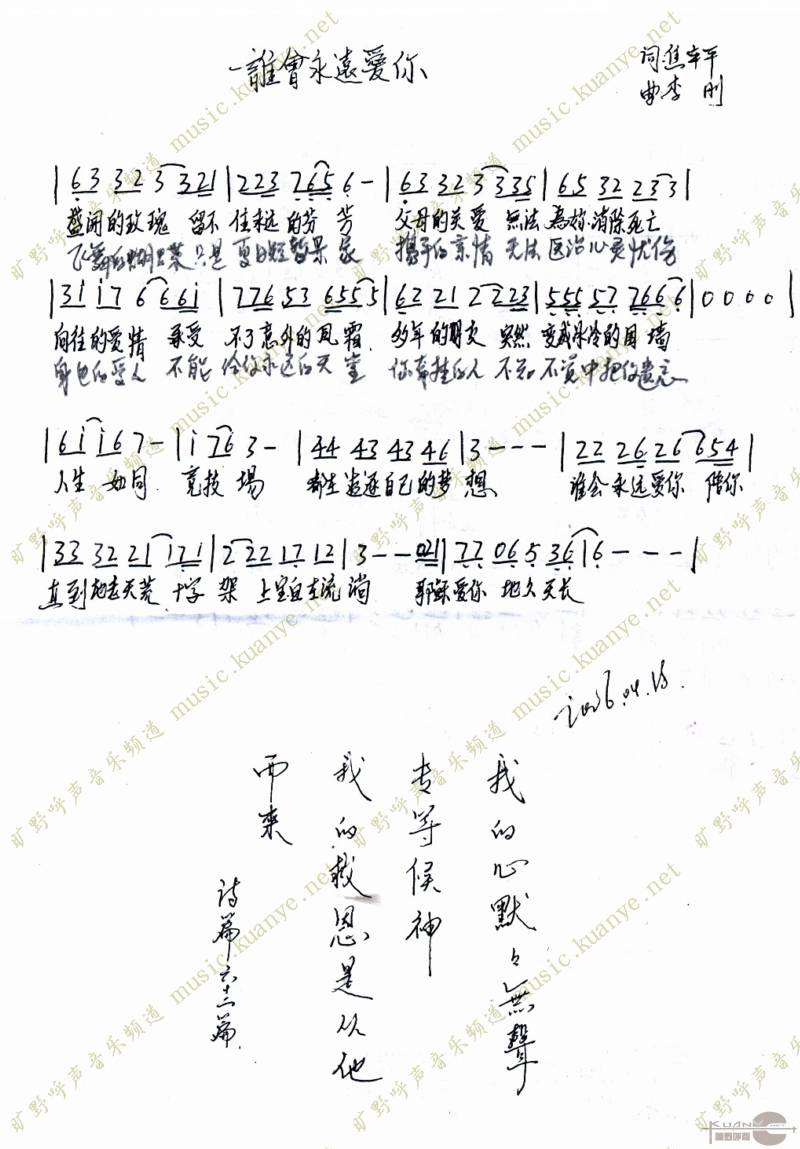 誰會永遠愛你
词:焦
曲:李 刚
|63 32 3321|223 2765 6-|63 323 3335|65 32 233|
盛开的玫瑰 留不住永远的芬芳 父母的关爱 無法為祢消除死亡
飞舞的 只是夏日短暂 携手的亲情 无法医治心灵忧伤
|31 i7 6661|776 53 6555|62 21 2223|555 57 7666|0000|
向往的爱情 承受不了意外的风霜 多年的朋友 突然变成冰冷的围墙
身边的爱人 不能给你永远的天堂 你牵挂的人 不知不觉中把你遗忘
|61 i67-|i 763-|44 43 43 46|3---|22 26 26 654|
人生如同 竞技場 都在追逐自己的梦想 谁会永远爱你 陪你
|33 32 21 171|2 22 17 12|3--021|77 06 5 36|6---|
直到地老天荒 十字架上宝血在流淌 耶稣爱你 地久天长
2006.04.15.
我的心默々無聲
专等候神
我的救恩是从他
而来
诗篇六十二篇
旷野呼声音乐频道 music.kuanye.net
KUANYE
旷野呼声